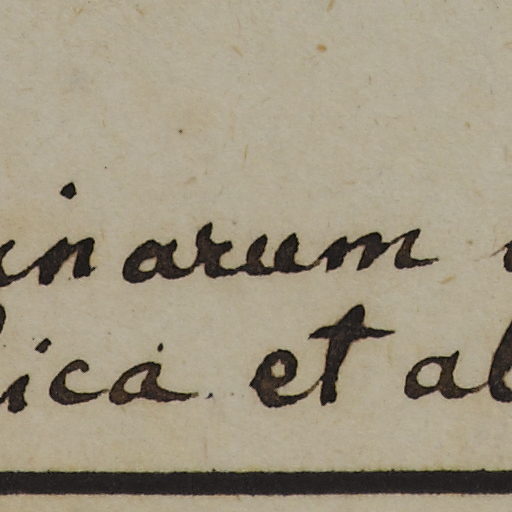 inarum
ica et al